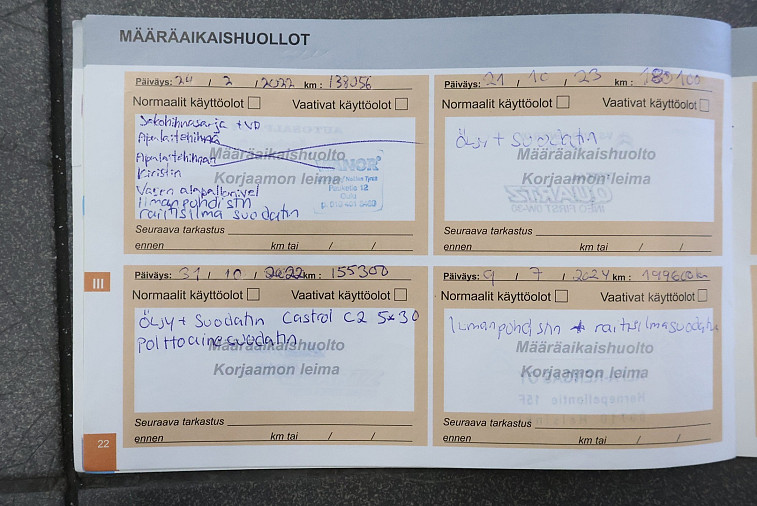 MÄÄRÄAIKAISHUOLLOT
Päiväys: 24 / 2 / 2022 km : 138056
Normaalit käyttöolot Vaativat käyttöolot
Jakohihnasarja + VP
Apulaitehihna
Apulaitehihnan
Kiristin
Vasen alapallonivel
Ilmanpuhdistin
raitisilma suodatin
Määräaikaishuolto
Korjaamon leima
Paukatie 12
Oulu
Seuraava tarkastus
ennen km tai / /
Päiväys: 21 / 10 / 23 km : 180100
Normaalit käyttöolot Vaativat käyttöolot
Öljy + suodatin
Määräaikaishuolto
Korjaamon leima
Seuraava tarkastus
ennen km tai / /
III
Päiväys: 31 / 10 / 2022 km : 155300
Normaalit käyttöolot Vaativat käyttöolot
Öljy + suodatin Castrol C2 5x30
polttoainesuodatin
Määräaikaishuolto
Korjaamon leima
Seuraava tarkastus
ennen km tai / /
Päiväys: 9 / 7 / 2024 km : 199600km
Normaalit käyttöolot Vaativat käyttöolot
Ilmanpuhdistin + raitisilmasuodatin
Määräaikaishuolto
Korjaamon leima
Seuraava tarkastus
ennen km tai / /
22